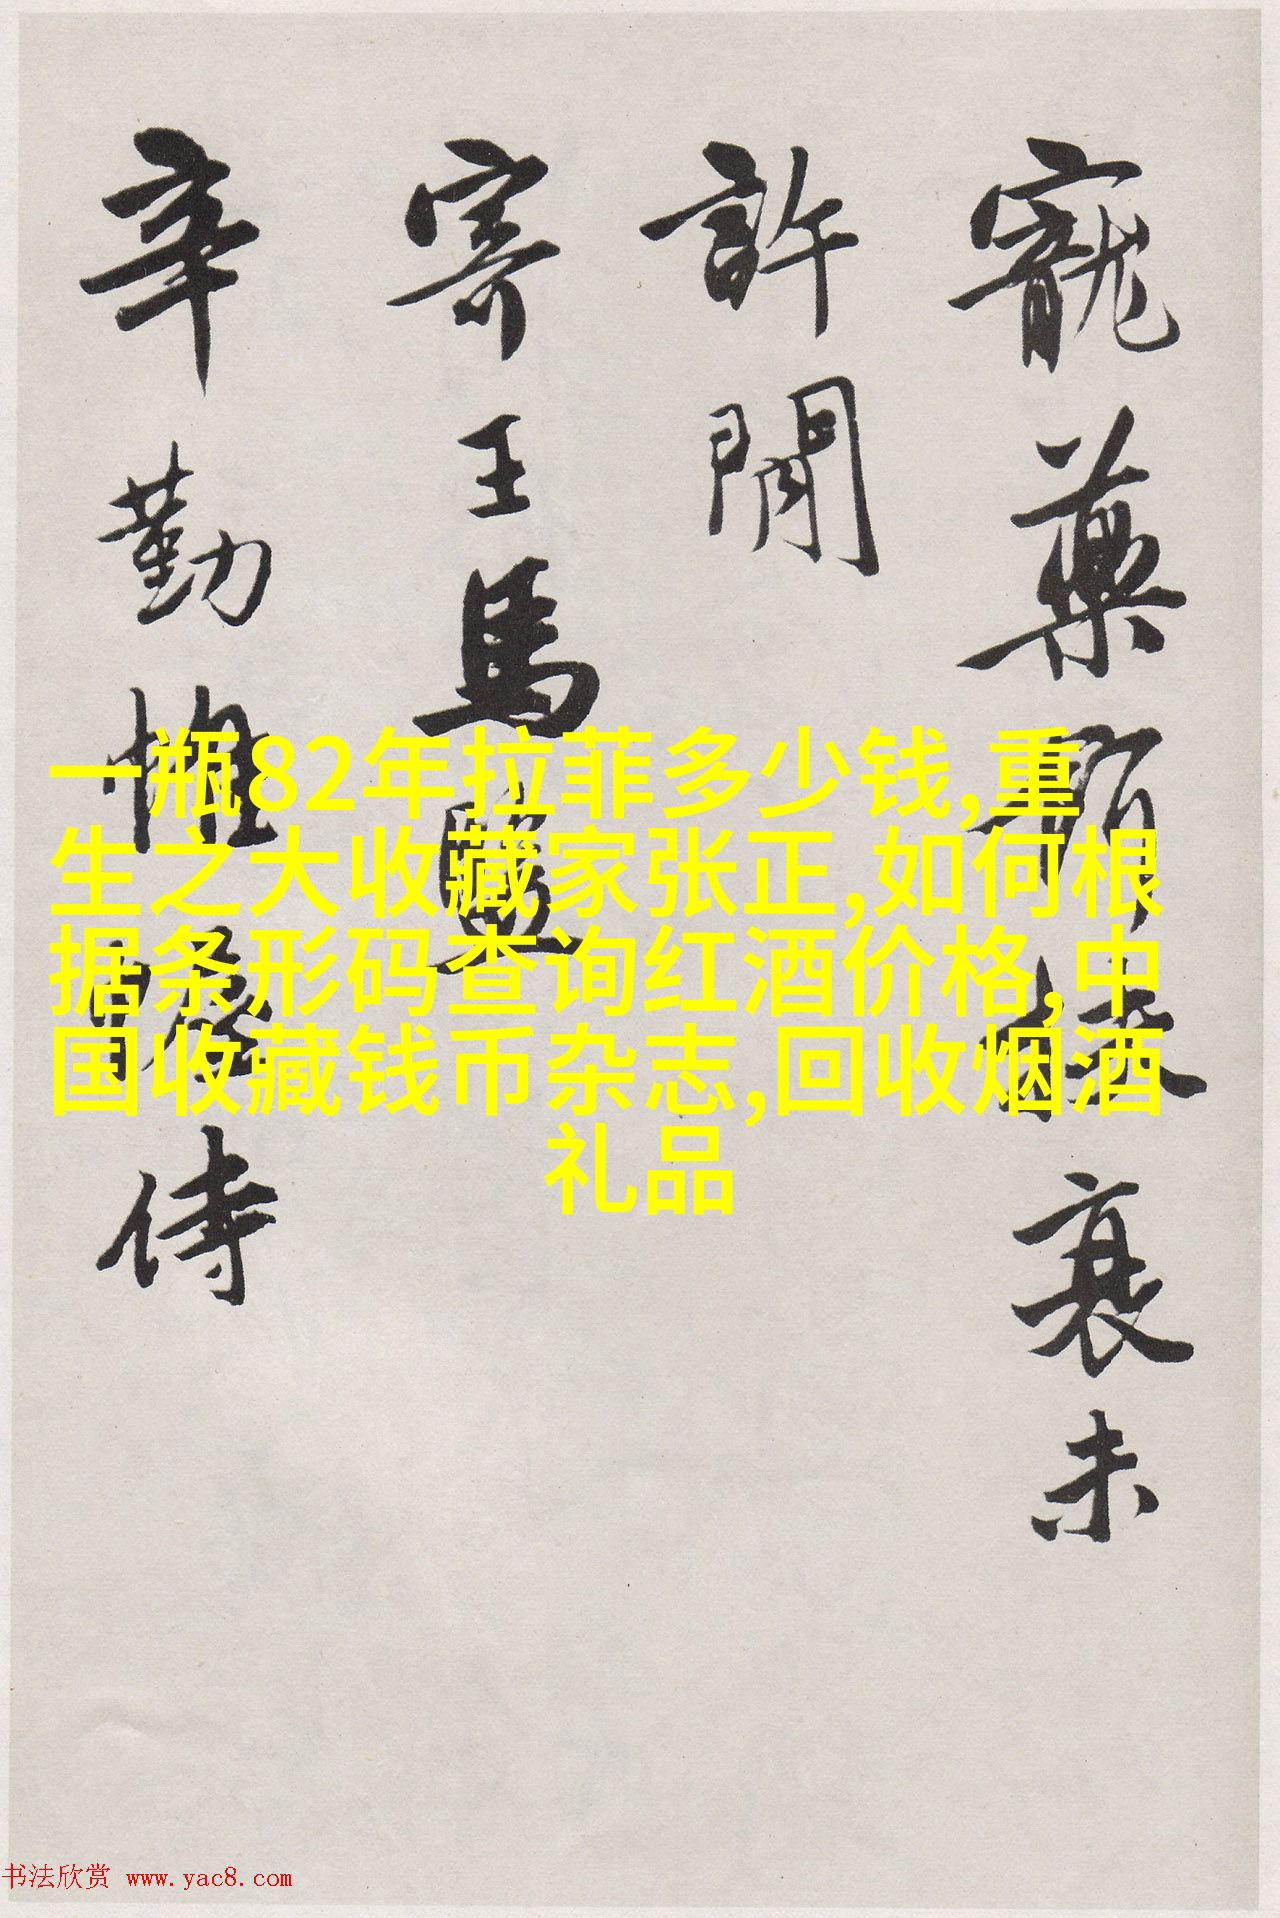 寵藥衰未
許閒
寄王馬監
辛勤惟侍
一瓶82年拉菲多少钱,重
生之大收藏家张正,如何根
据条形码查询红酒价格,中
国收藏钱币杂志,回收烟酒
礼品
书法欣赏 www.yac8.com